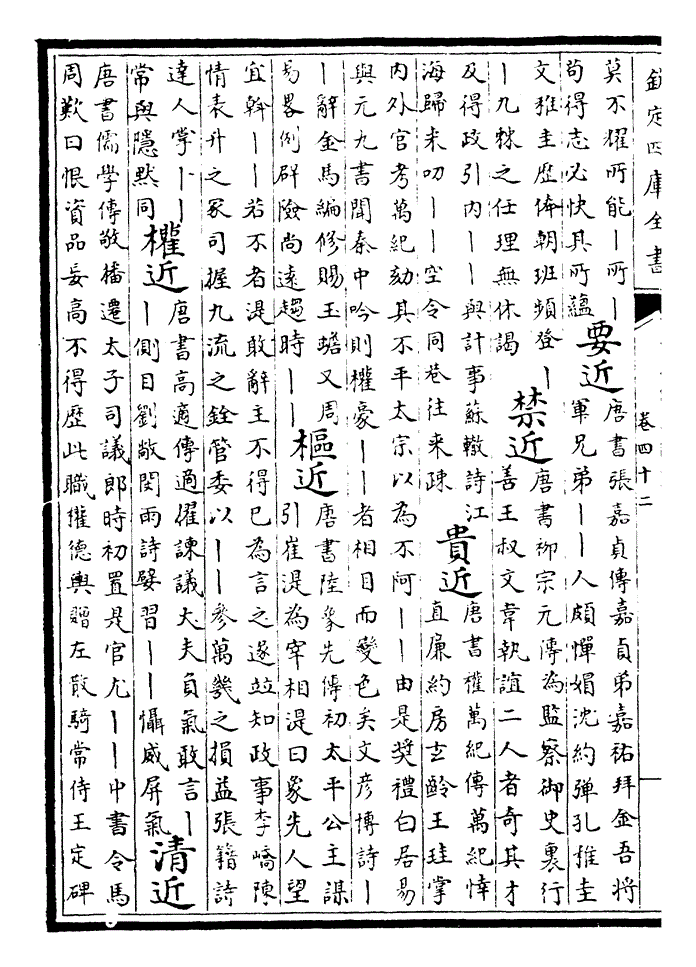 欽定四庫全書
卷四十二
莫不擢所能丨所丨
苟得志必快其所蘊
要近
唐書張嘉貞傳嘉貞弟嘉祐拜金吾將
軍兄弟丨丨人頗憚媢沈約彈孔稚圭
文稚圭歷體朝班頻登丨
丨九棘之任理無休謁
禁近
唐書柳宗元傳為監察御史裏行
善王叔文韋執誼二人者奇其才
及得政引内丨丨與計事蘇轍詩江
海歸来叨丨丨空令同巷往来疎
貴近
唐書權萬紀傳萬紀悻
直廉約房玄齡王珪掌
内外官考萬紀劾其不平太宗以為不阿丨丨由是奬禮白居易
與元九書聞秦中吟則權豪丨丨者相目而變色矣文彦博詩丨
丨辭金馬編修賜玉蟾又周
易畧例群險尚遠趨時丨丨
樞近
唐書陸象先傳初太平公主謀
引崔湜為宰相湜曰象先人望
宜幹丨丨若不者湜敢辭主不得已為言之遂竝知政事李嶠陳
情表升之冢司握九流之銓管委以丨丨參萬幾之損益張籍詩
達人掌丨丨
常與隱默同
權近
唐書高適傳適擢諫議大夫負氣敢言丨
丨側目劉敞閔雨詩嬖習丨丨懾威屏氣
清近
唐書儒學傳敬播遷太子司議郎時初置是官尤丨丨中書令馬
周歎曰恨資品妄高不得歴此職權德輿贈左散騎常侍王定碑